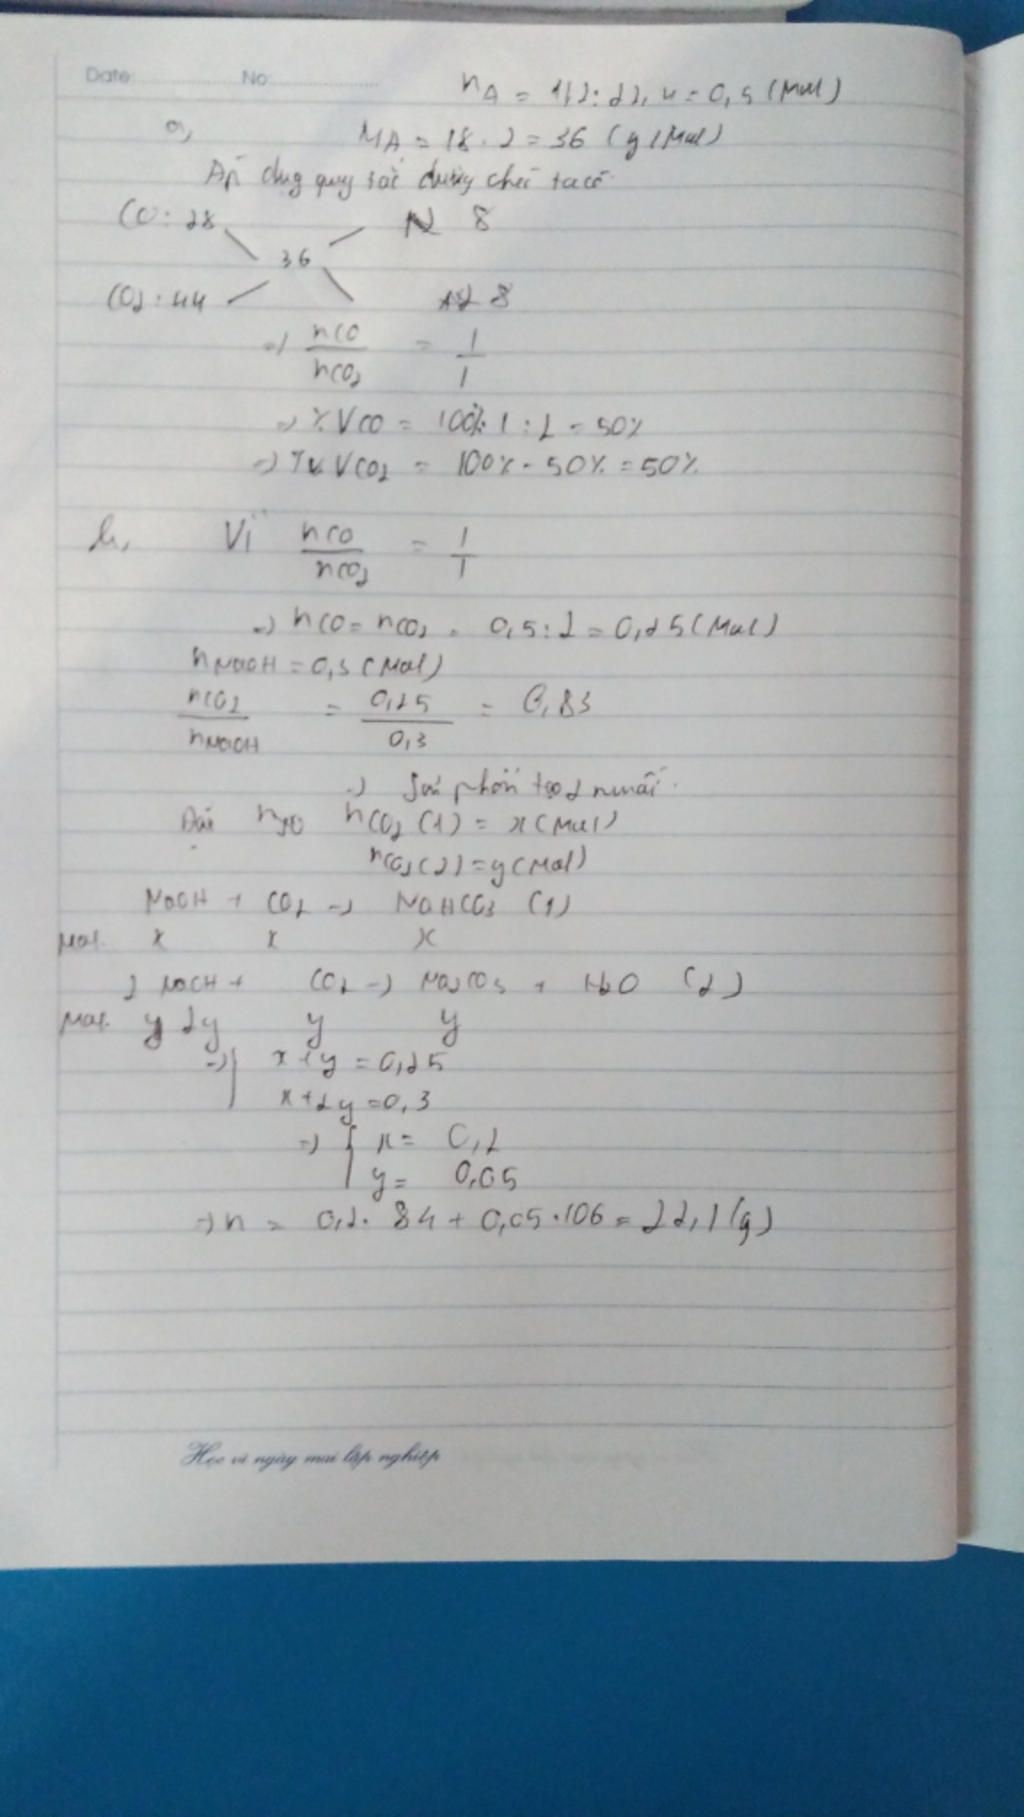 Date: No:
nA = 11,2 : 22,4 = 0,5 (mol)
a, MA = 18 . 2 = 36 (g/mol)
Áp dụng quy tắc đường chéo ta có
CO : 28 8
36
CO2 : 44 8
=> nCO / nCO2 = 1 / 1
=> % VCO = 100% . 1 : 2 = 50%
=> % VCO2 = 100% - 50% = 50%
b, Vì nCO / nCO2 = 1 / 1
=> nCO = nCO2 = 0,5 : 2 = 0,25 (mol)
nNaOH = 0,3 (mol)
nCO2 / nNaOH = 0,25 / 0,3 = 0,83
=> Sản phẩm tạo 2 muối.
Đặt nCO2 (1) = x (mol)
nCO2 (2) = y (mol)
NaOH + CO2 -> NaHCO3 (1)
mol. x x x
2 NaOH + CO2 -> Na2CO3 + H2O (2)
mol. 2y y y
=> x + y = 0,25
x + 2y = 0,3
=> { x = 0,2
y = 0,05
=> m = 0,2 . 84 + 0,05 . 106 = 22,1 (g)
Học vì ngày mai lập nghiệp